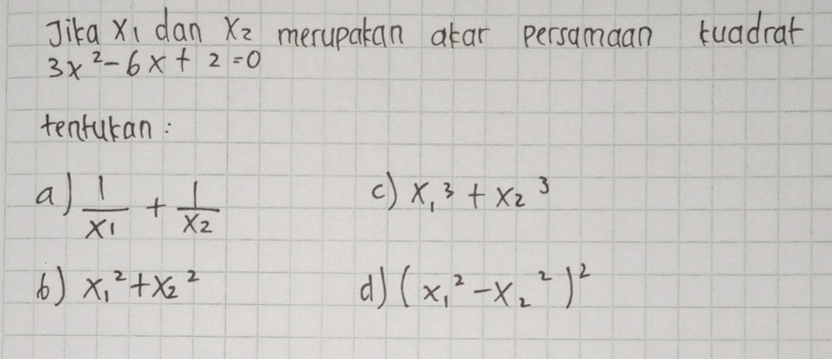 Jika x₁ dan x₂ merupakan akar persamaan kuadrat
3x² - 6x + 2 = 0
tentukan:
a) 1/x₁ + 1/x₂
c) x₁³ + x₂³
b) x₁² + x₂²
d) (x₁² - x₂²)²